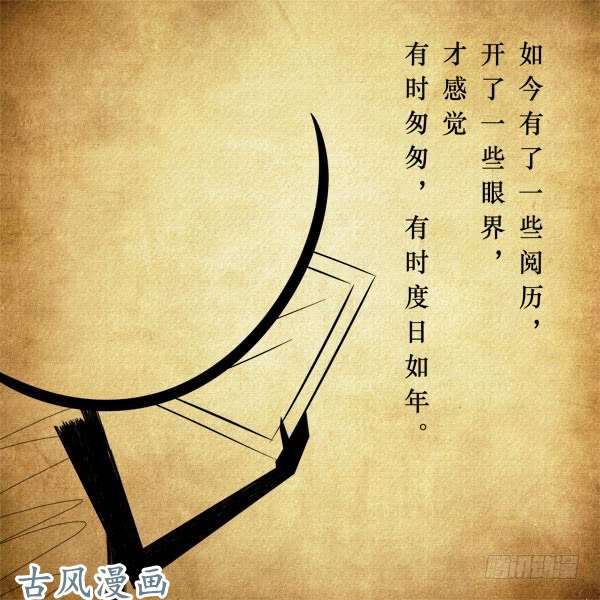 如今有了一些阅历，
开了一些眼界，
才感觉
有时匆匆，有时度日如年。
古风漫画
腾讯动漫